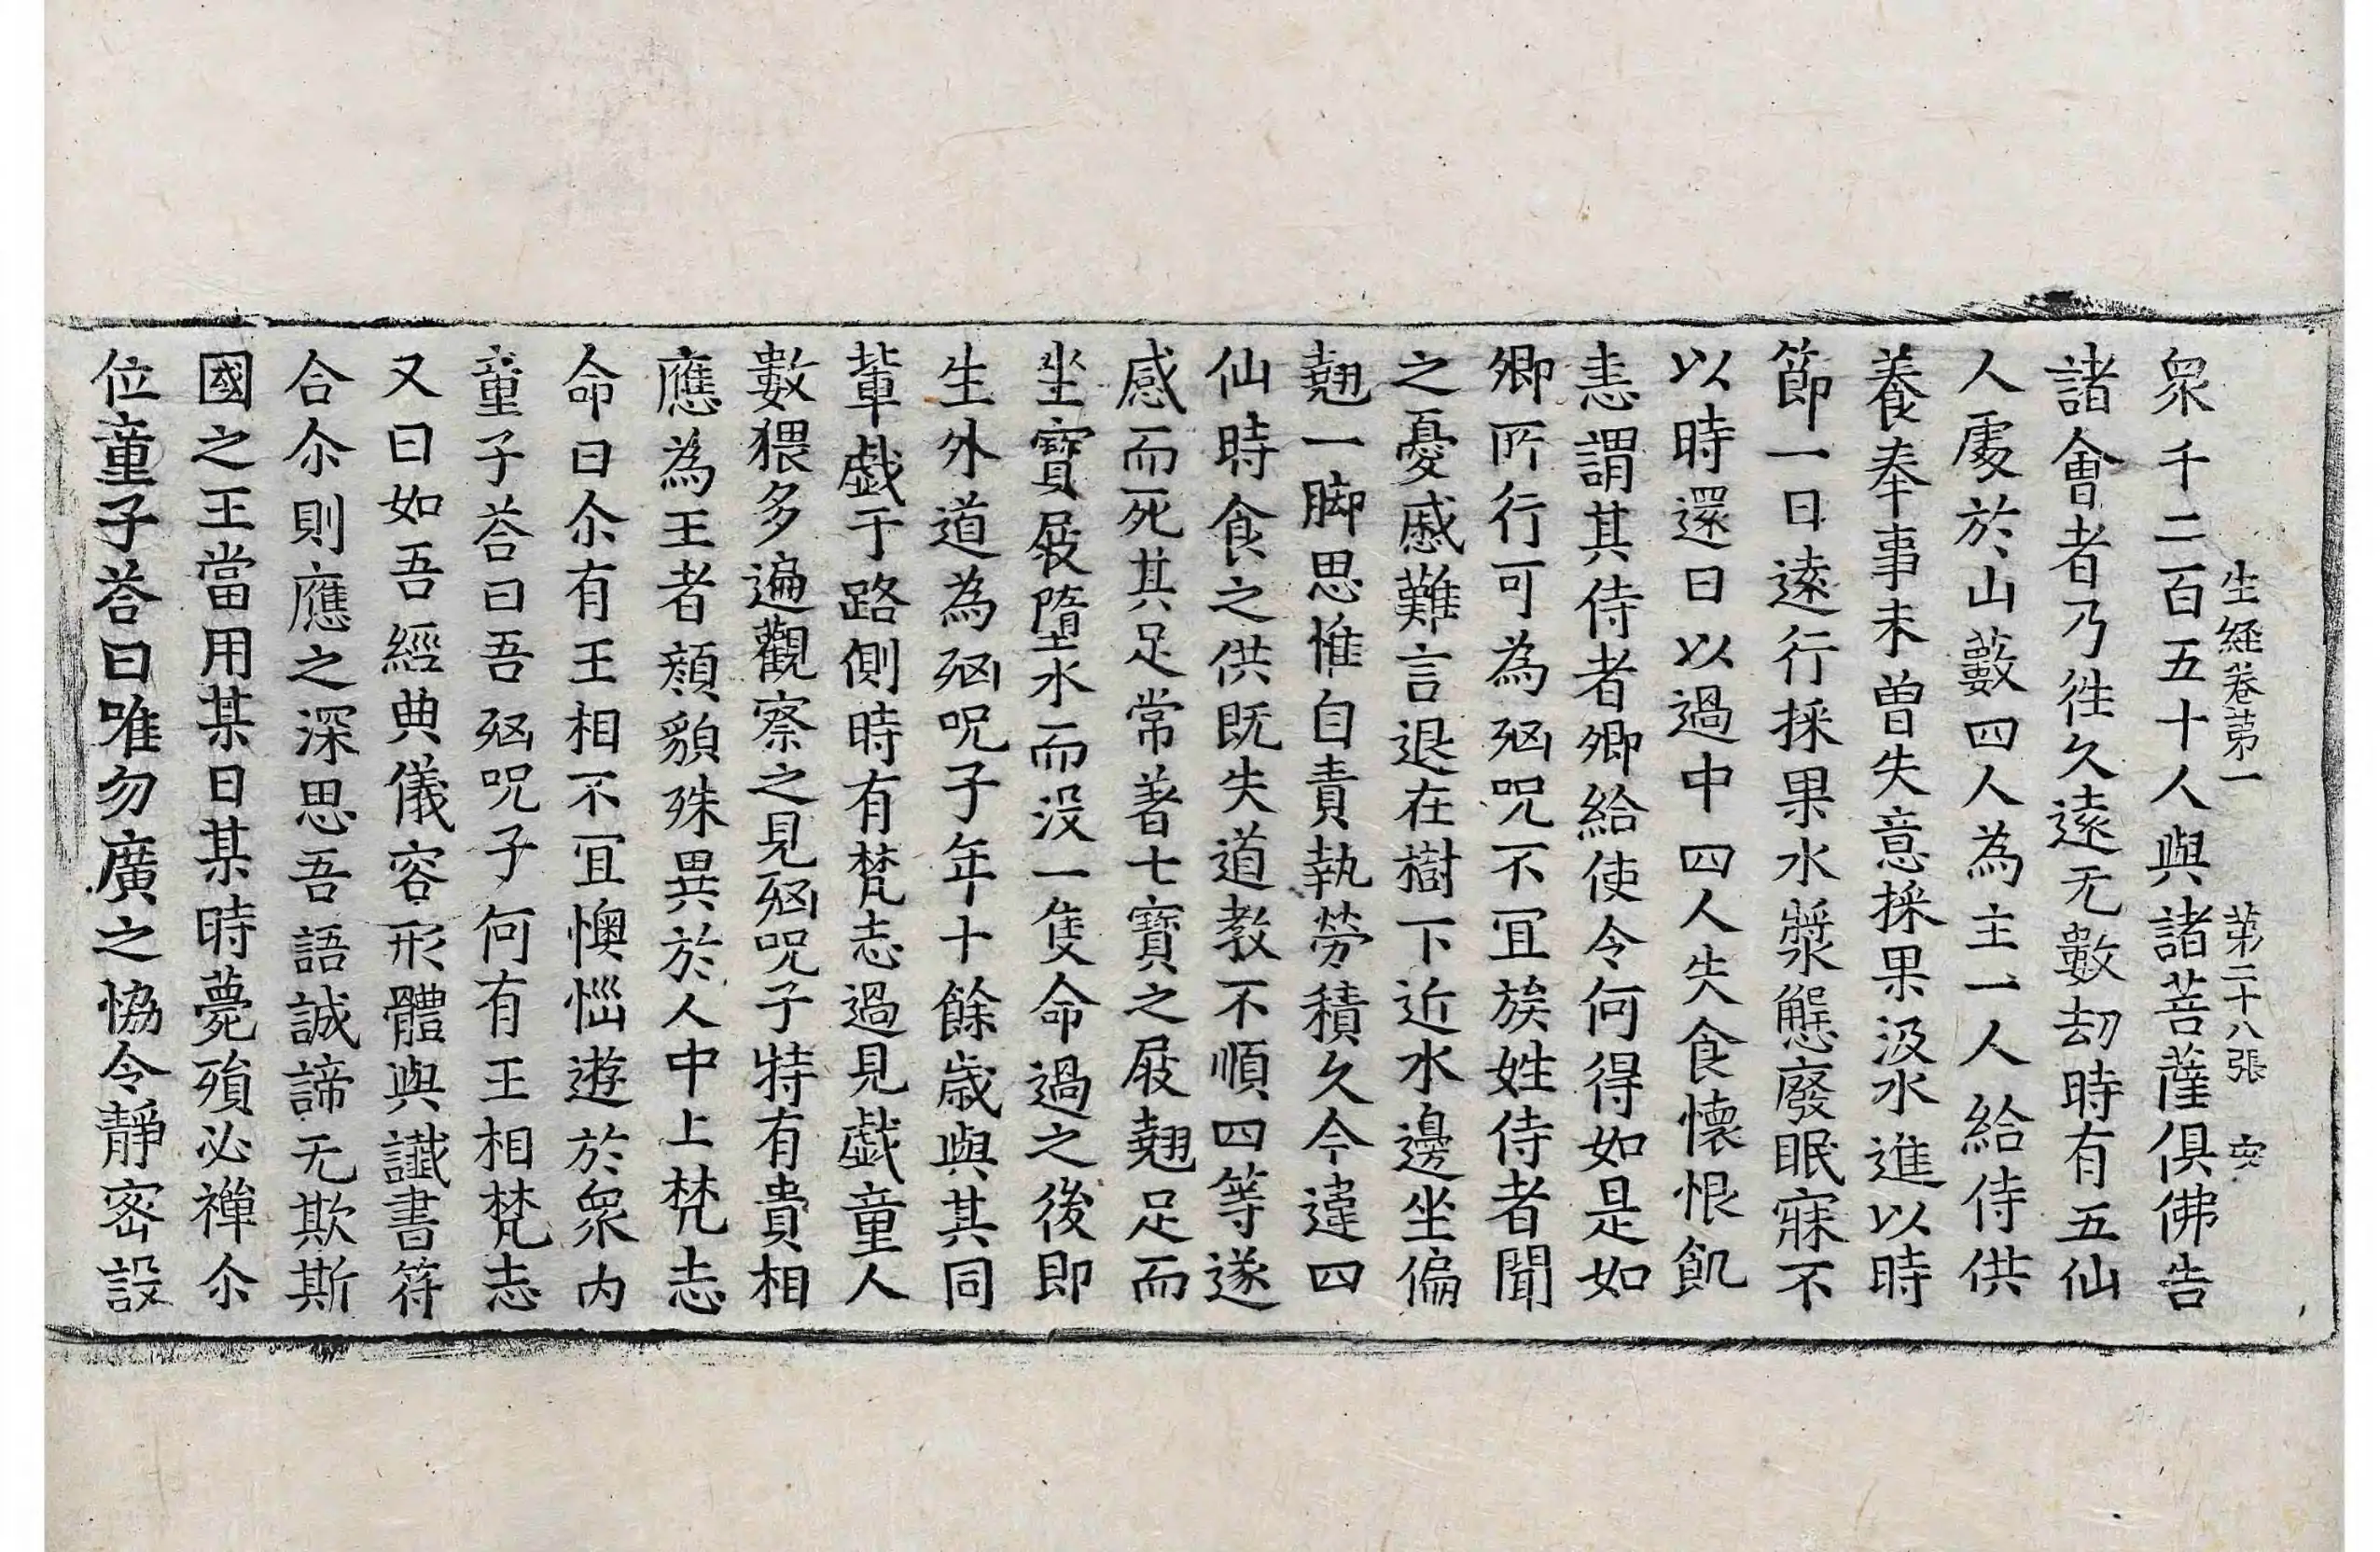 生經卷第一 第二十八張 宍
衆千二百五十人與諸菩薩俱佛告
諸會者乃徃久遠无數劫時有五仙
人處於山藪四人為主一人給侍供
養奉事未曽失意採果汲水進以時
節一日遠行採果水漿懈廢眠寐不
以時還日以過中四人失食懷恨飢
恚謂其侍者卿給使令何得如是如
卿所行可為殈呪不冝族姓侍者聞
之憂慼難言退在樹下近水邊坐偏
翹一脚思惟自責執勞積久今違四
仙時食之供既失道教不順四等遂
感而死其足常著七寶之屐翹足而
坐寶屐墮水而没一隻命過之後即
生外道為殈呪子年十餘歲與其同
輩戱于路側時有梵志過見戱童人
數猥多遍觀察之見殈呪子特有貴相
應為王者顔貌殊異於人中上梵志
命曰尒有王相不冝懊惱遊於衆内
童子荅曰吾殈呪子何有王相梵志
又曰如吾經典儀容形體與讖書符
合尒則應之深思吾語誠諦无欺斯
國之王當用某日某時薨殞必禪尒
位童子荅曰唯勿廣之恊令靜宻設